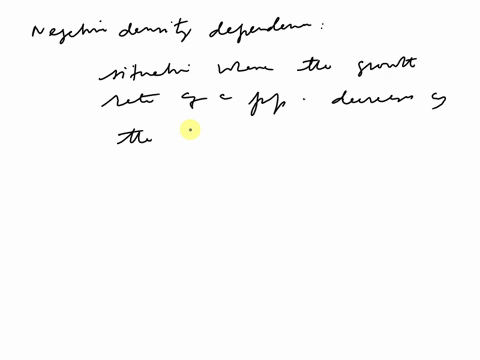 Negative density dependence:
situation where the growth
rate of a pop. decreases as
the